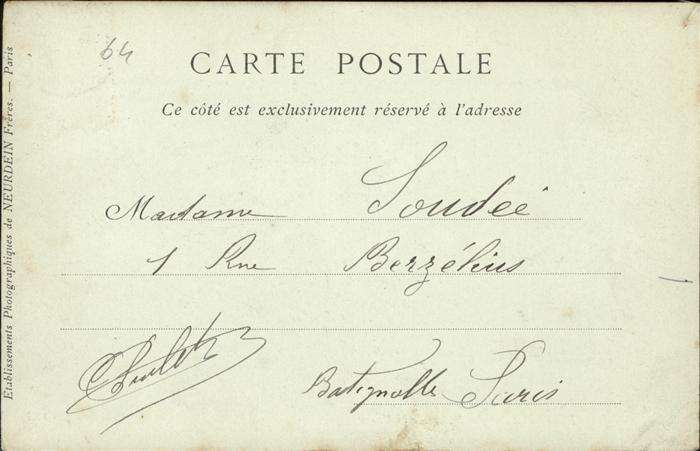 64
CARTE POSTALE
Ce côté est exclusivement réservé à l'adresse
Madame Soudée
1 Rue Berzélius
Batignolle Paris
Etablissements Photographiques de NEURDEIN Frères. — Paris